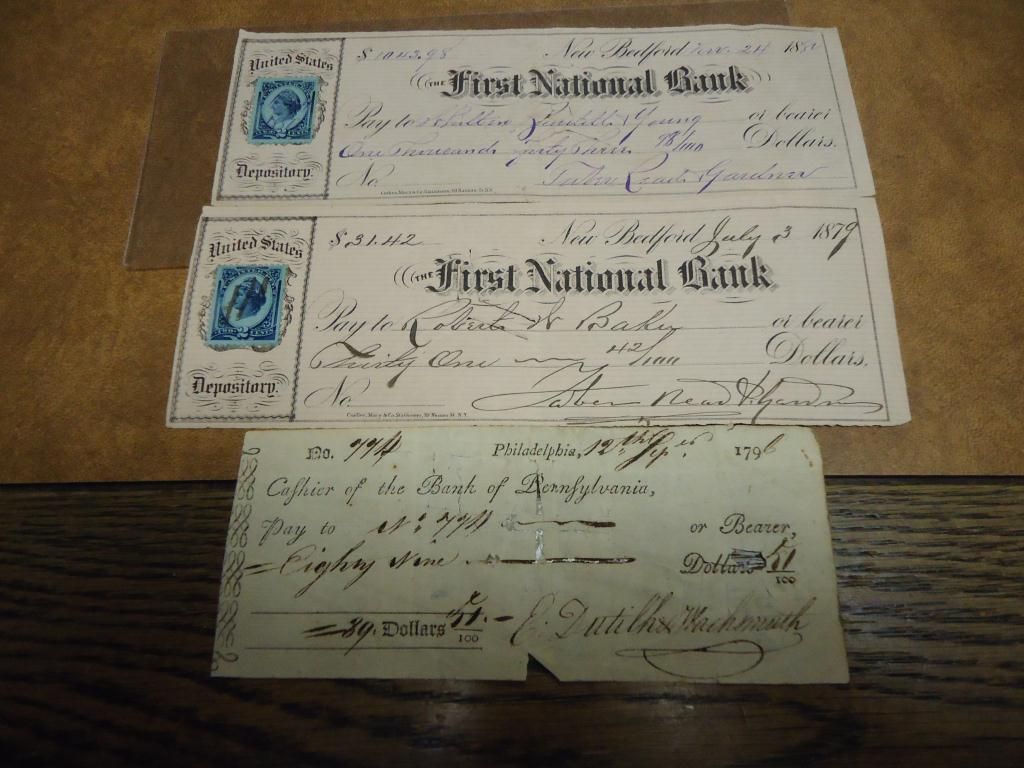 United States
$1043.98 New Bedford Nov. 24 188
THE First National Bank
Pay to & Young or bearer
One Thousand Forty Three 98/100 Dollars.
TWO 2 CENTS
Depository.
No. Taber Read & Gardner
United States
$31.42 New Bedford July 3 1879
THE First National Bank
Pay to Robert W Baker or bearer
Thirty One 42/100 Dollars.
TWO 2 CENTS
Depository.
No. Taber Read & Gardner
No. 774 Philadelphia, 12th Sep. 1796
Cashier of the Bank of Pennsylvania,
Pay to No. 774 or Bearer,
Eighty Nine Dollars 51/100
89. Dollars 51/100 E. Dutilh & Wachsmuth